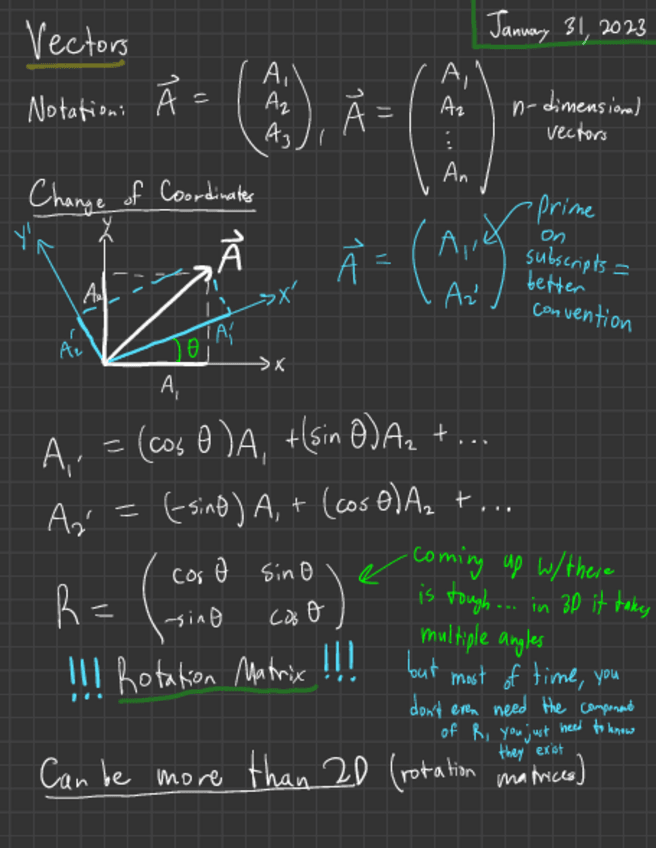 January 31, 2023
Vectors
Notation: A⃗ = (A₁ A₂ A₃), A⃗ = (A₁ A₂ ⋮ Aₙ) n-dimensional
vectors
Change of Coordinates
Y'
Y
A⃗
A₂
X'
A₂'
A₁'
θ
X
A₁
A⃗ = (A₁' A₂')
prime
on
subscripts =
better
convention
A₁' = (cos θ)A₁ + (sin θ)A₂ + ...
A₂' = (-sinθ)A₁ + (cosθ)A₂ + ...
R = (cos θ sin θ
-sinθ cos θ)
coming up w/there
is tough... in 3D it takes
multiple angles
!!! Rotation Matrix !!!
but most of time, you
don't even need the components
of R, you just need to know
they exist
Can be more than 2D (rotation matrices)